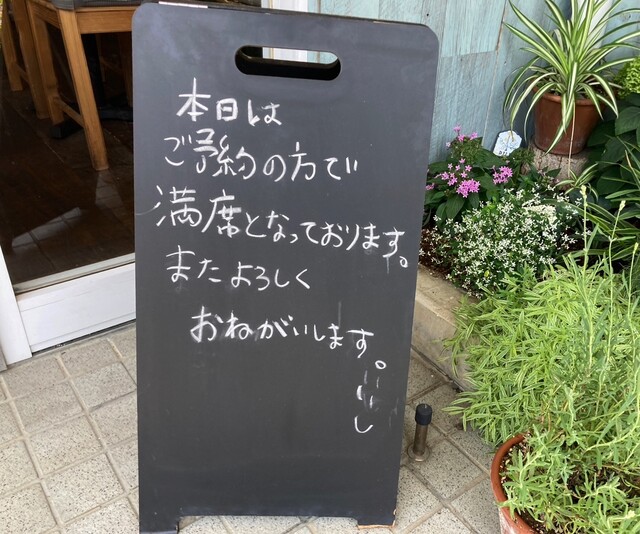 本日は
ご予約の方で
満席となっております。
またよろしく
おねがいします。